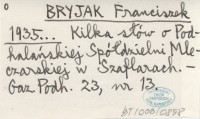 BRYJAK Franciszek
1935... Kilka słów o Pod-
halańskiej Spółdzielni Mle-
czarskiej w Szaflarach.-
Gaz Podh. 23, nr 13.
BT/000/0858